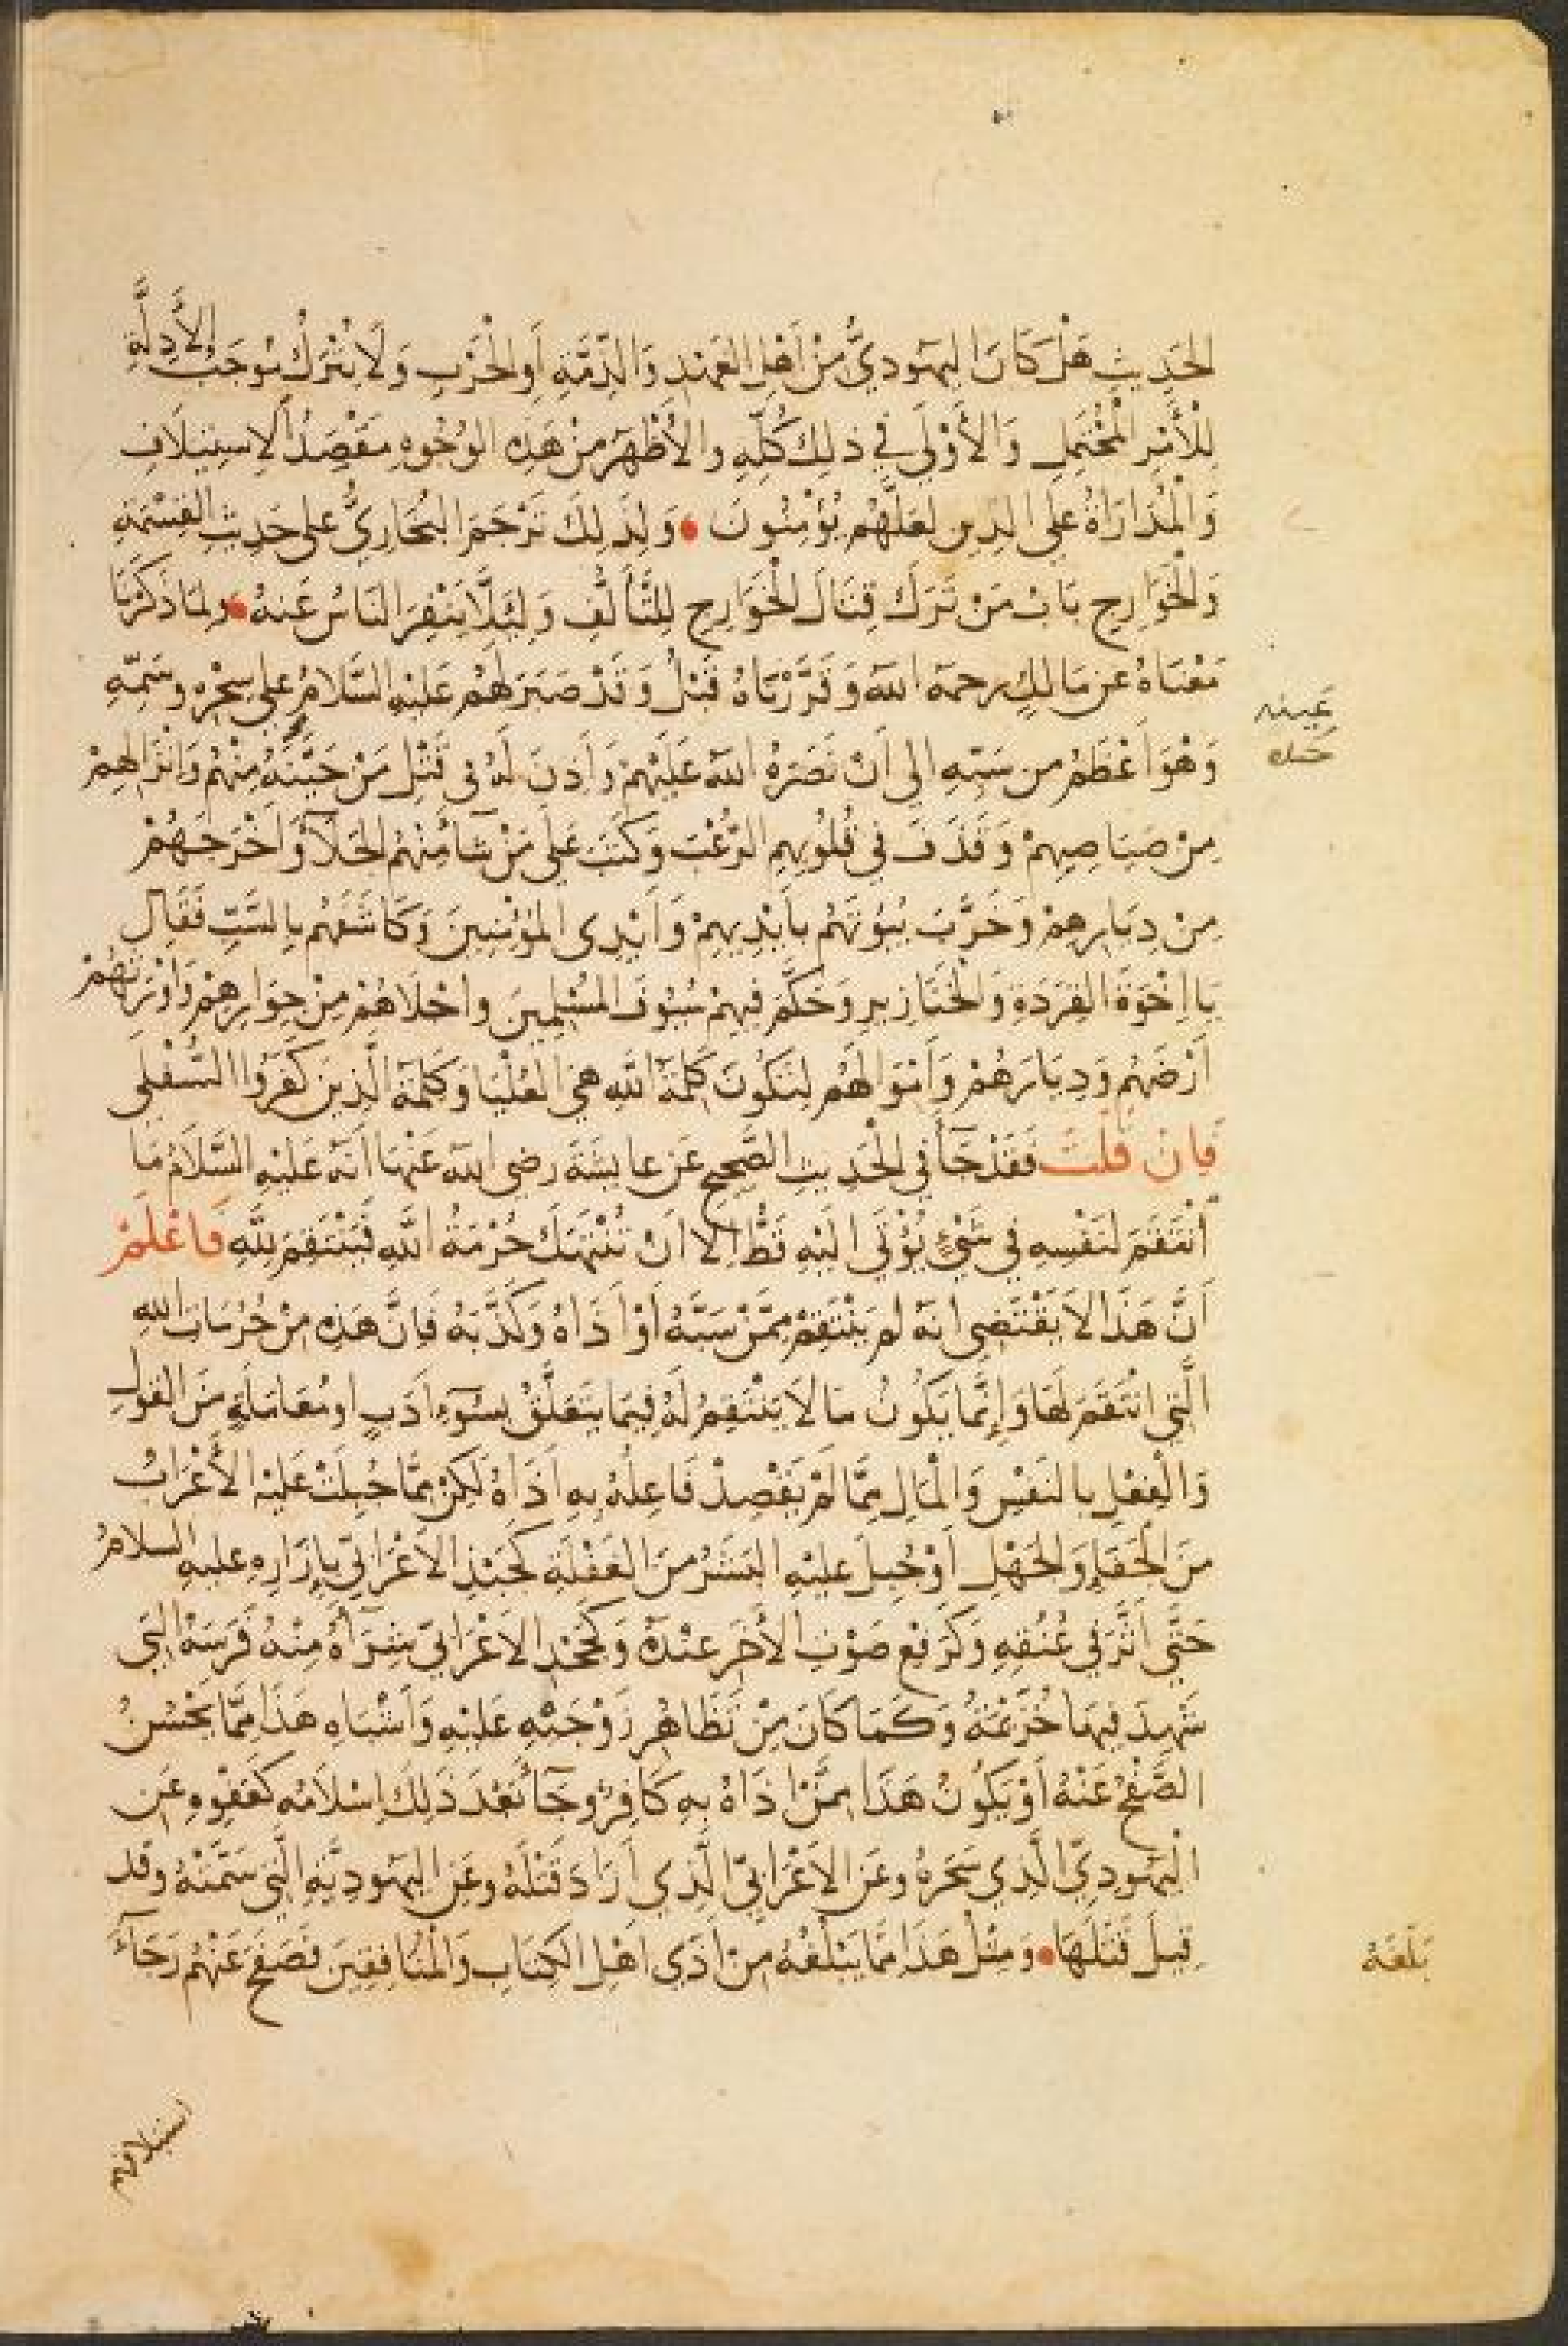 الحَدِيثِ هَلْ كَانَ اليَهُودِيُّ مِنْ أَهْلِ العَهْدِ وَالذِّمَّةِ أَوِ الْحَرْبِ وَلَا يُتْرَكُ مُوجَبُ الأَدِلَّةِ
لِلْأَمْرِ الْمُحْتَمِلِ وَالأَوْلَى فِي ذلِكَ كُلِّهِ والأَظْهَرُ مِنْ هَذِهِ الوُجُوهِ مَقْصِدُ الاِسْتِيلَافِ
وَالْمُدَارَاةُ عَلَى الدِينِ لَعَلَّهُم يُؤْمِنُونَ وَلِذَلِكَ تَرْجَمَ البُخَارِيُّ على حَدِيثِ القِسْمَةِ
وَالْخَوَارِجِ بَابُ مَنْ تَرَكَ قِتَالَ الْخَوَارِجِ لِلتَّأَلُّفِ وَلِئَلَّا يَنْفِرَ النَاسُ عَنهُ ولِمَا ذَكَرْنَا
مَعْنَاهُ عن مَالِكٍ رحمة الله وَقَرَّرْنَاهُ قَبْلُ وَقَدْ صَبَرَ لَهُمْ عَلَيْهِ السَّلَامُ على سِحْرِه وسَمِّهِ
وَهْوَ أَعْظَمُ من سَبِّهِ الى أَنْ نَصَرَهُ اللهُ عَلَيْهِمْ وَأَذِنَ لَهُ فى قَتْلِ مَنْ حَيَّنَهُ مِنْهُمْ وَإِنْزَالِهِمْ
مِنْ صَيَاصِيهِمْ وَقَذَفَ فِي قُلُوبِهِمِ الرُّعْبَ وَكَتَبَ عَلَى مَنْ شَآءَ مِنْهُمُ الجَلَآءَ وَأَخْرَجَهُمْ
مِنْ دِيَارِهِمْ وَخَرَّبَ بُيُوتَهُمْ بِأَيْدِيهِمْ وَأَيْدِى المُؤْمِنِينَ وَكَاشَفَهُم بِالسَّبِّ فَقَالَ
يَا إِخْوَةَ القِرَدَةِ وَالْخَنَازِيرِ وَحَكَّمَ فِيهِمْ سُيُوفَ المُسْلِمِينَ وأَجْلَاهُمْ مِنْ جِوَارِهِمْ وَأَوْرَثَهُمْ
أَرْضَهُمْ وَدِيَارَهُمْ وَأَمْوَالَهُمْ لِتَكُونَ كَلِمَةُ اللهِ هِيَ العُلْيَا وَكَلِمَةُ الَّذِينَ كَفَرُوا السُّفْلَى
فَإِنْ قُلْتَ فَقَدْ جَآءَ فِي الْحَدِيثِ الصَّحِيحِ عَن عايشَةَ رضى الله عَنْهَا أنَهُ عَلَيْهِ السَّلَامُ مَا
انْتَقَمَ لِنَفْسِهِ فِي شَيْءٍ يُؤْتَى إِلَيْهِ قَطُّ إِلَّا أَنْ تُنْتَهَكَ حُرْمَةُ اللهِ فَيَنْتَقِمَ لِلَّهِ فَاعْلَمْ
أَنَّ هَذَا لَا يَقْتَضِى انَهُ لم يَنْتَقِمْ مِمَّنْ سَبَّهُ أَوْ أَذَاهُ وَكَذَّبَهُ فَإِنَّ هَذِهِ مِنْ حُرُمَاتِ اللهِ
الَّتِي انْتَقَمَ لَهَا وَإِنَّمَا يَكُونُ مَا لَا يَنْتَقِمُ لَهُ فِيمَا يَتَعَلَّقُ بِسُوءِ أَدَبٍ اَوْ مُعَامَلَةٍ مِنَ القَوْلِ
وَالْفِعْلِ بِالنَفْسِ وَالْمَالِ مِمَّا لَمْ يَقْصِدْ فَاعِلُهُ بِهِ أَذَاهُ لَكِنْ مِمَّا جُبِلَتْ عَلَيْهِ الأَعْرَابُ
مِنَ الْجَفَاءِ وَالْجَهْلِ أَوْ جُبِلَ عَلَيْهِ البَشَرُ مِنَ الغَفْلَةِ كَجَبْذِ الأَعْرَابِيِّ بِإِزَارِهِ عليهِ السلامُ
حَتَّى أَثَّرَ فِي عُنُقِهِ وَكَرَفْعِ صَوْتِ الأَخَرِ عِنْدَهُ وَكَجَحْدِ الأَعْرَابِيِّ شِرَآهُ مِنْهُ فَرَسَهُ الَّتِي
شَهِدَ فِيهَا خُزَيْمَةُ وَكَمَا كَانَ مِنْ تَظَاهُرِ زَوْجَتَيْهِ عَلَيْهِ وَأَشْبَاهِ هَذَا مِمَّا يَحْسُنُ
الصَّفْحُ عَنْهُ أَوْ يَكُونُ هَذَا مِمَّنْ أَذَاهُ بِهِ كَافِرٌ وَجَآءَ بَعْدَ ذَلِكَ إِسْلَامُهُ كَعَفْوِهِ عَن
الْيَهُودِيِّ الَّذِي سَحَرَهُ وعَنِ الأَعْرَابِيِّ الَّذِي أَرَادَ قَتْلَهُ وعَنِ اليَهُودِيَّةِ الَّتِي سَمَّتْهُ وقد
قِيلَ قَتَلَهَا وَمِثْلُ هَذَا مِمَّا يَبْلُغُهُ مِنْ أَذَى أَهْلِ الكِتَابِ وَالْمُنَافِقِينَ فَصَفَحَ عَنْهُمْ رَجَآءَ
بَلَغَهُ
استيلافهم